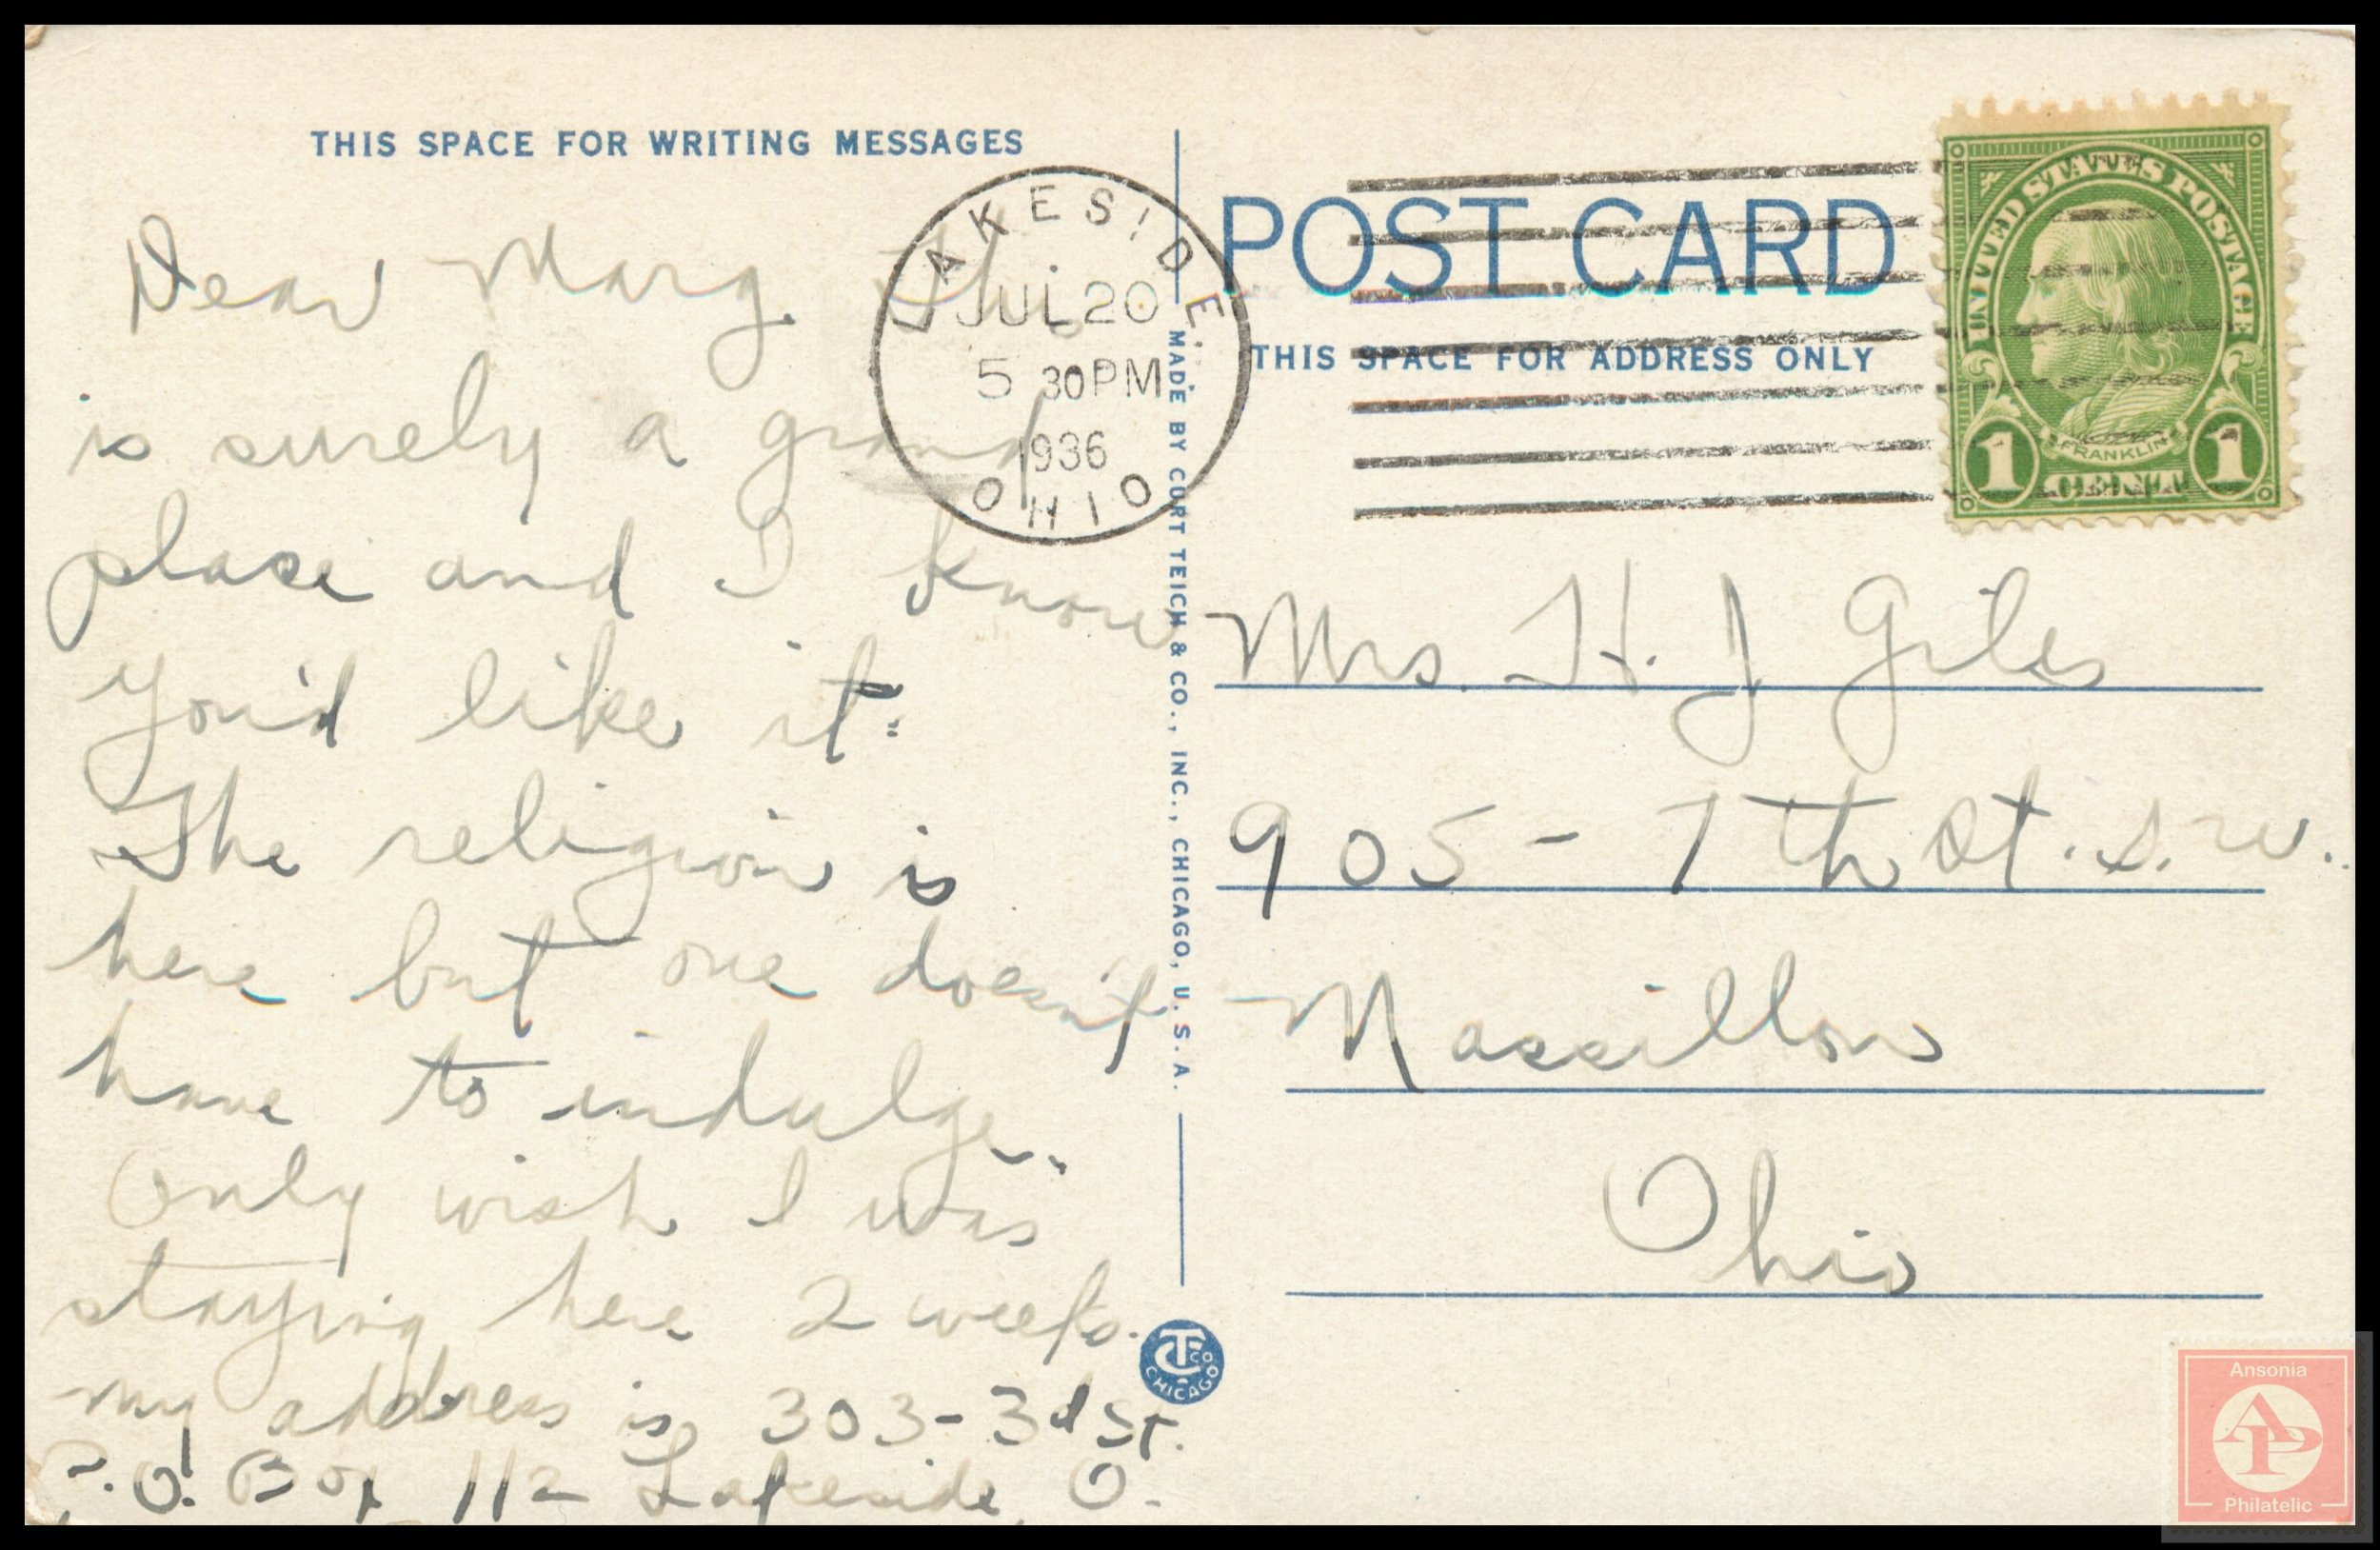 THIS SPACE FOR WRITING MESSAGES
Dear Marg. This
is surely a grand
place and I know
you'd like it.
The religion is
here but one doesn't
have to indulge.
Only wish I was
staying here 2 weeks.
my address is 303-3d St.
P.O. Box 112 Lakeside, O.
LAKESIDE,
JUL 20
5 30 PM
1936
OHIO
MADE BY CURT TEICH & CO., INC., CHICAGO, U. S. A.
CT CO
CHICAGO
POST CARD
THIS SPACE FOR ADDRESS ONLY
UNITED STATES POSTAGE
FRANKLIN
1 CENT 1
Mrs. H. J Giles
905 - 7th St. S.W.
Massillon
Ohio
Ansonia
AP
Philatelic